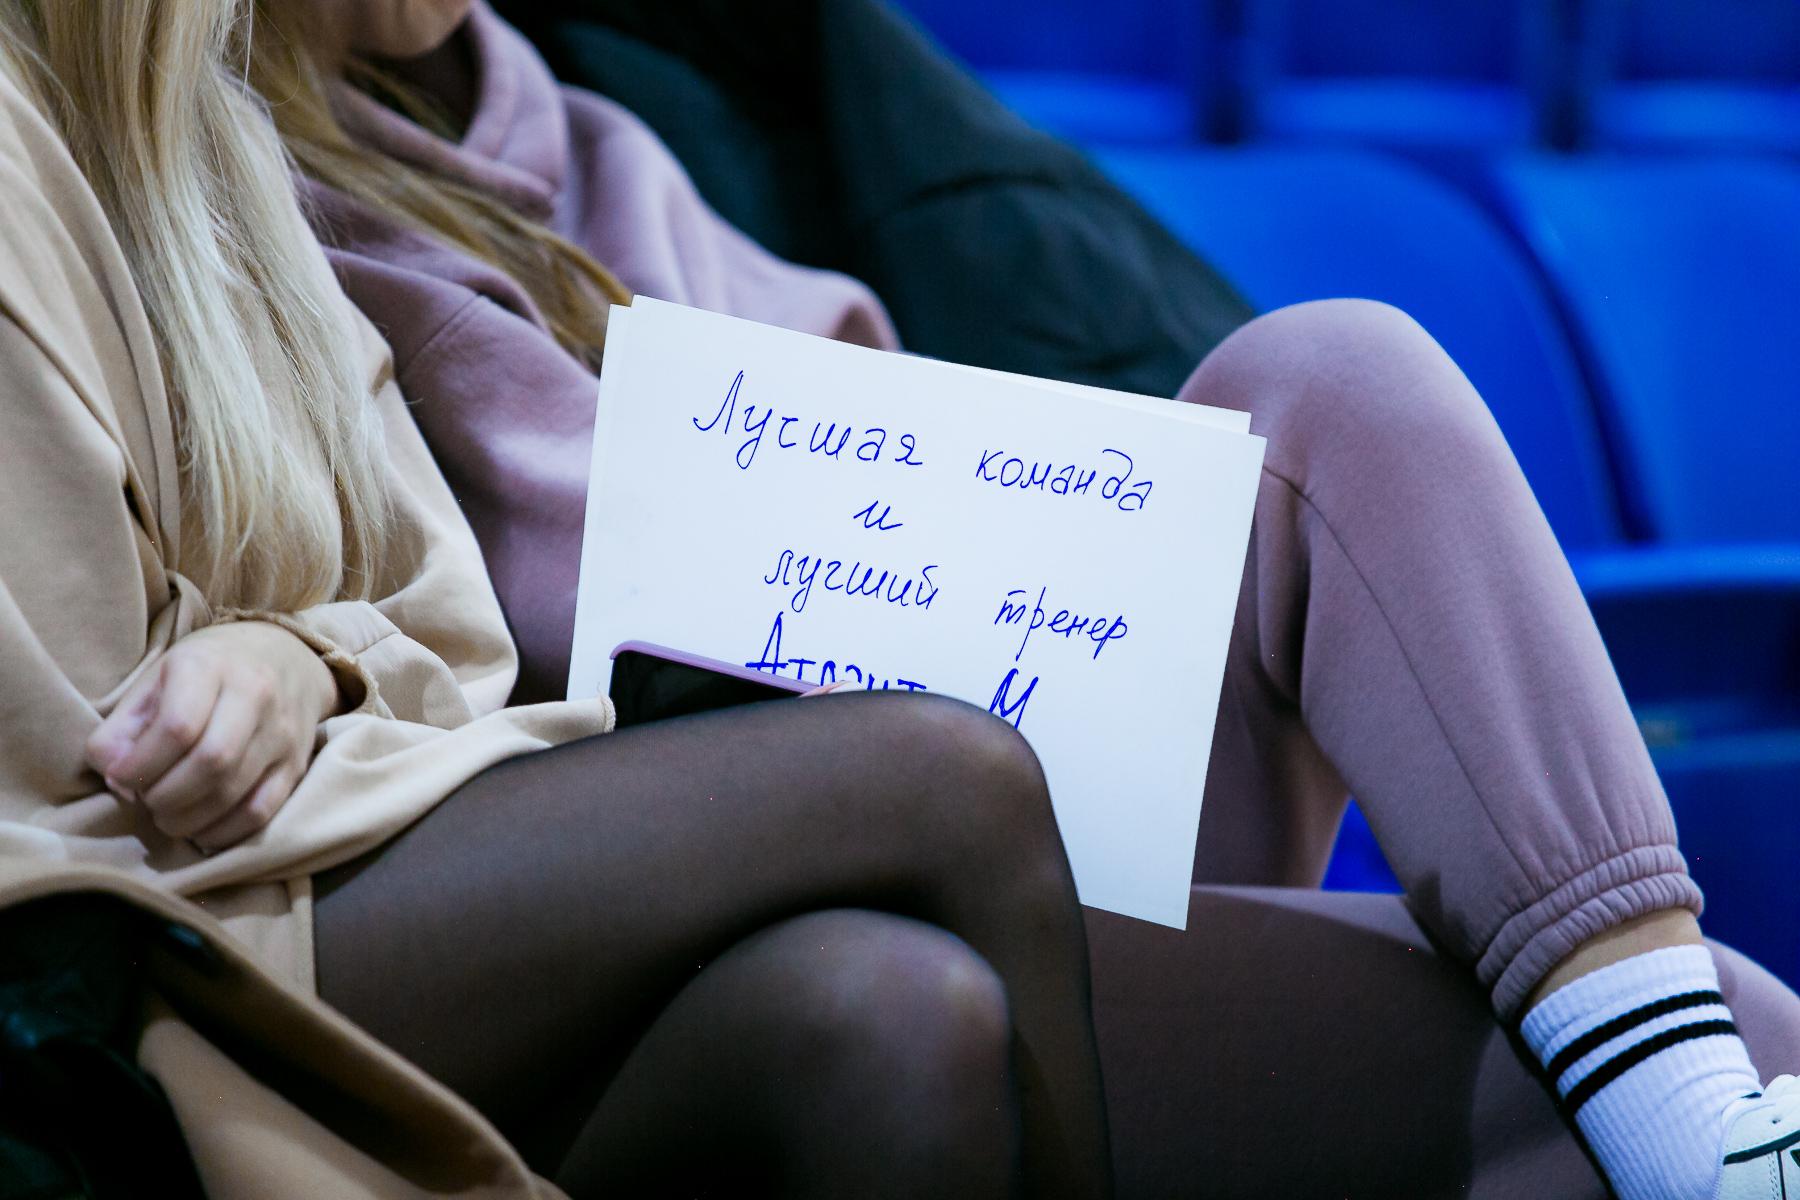 Лучшая команда
и
лучший тренер
Атлант М